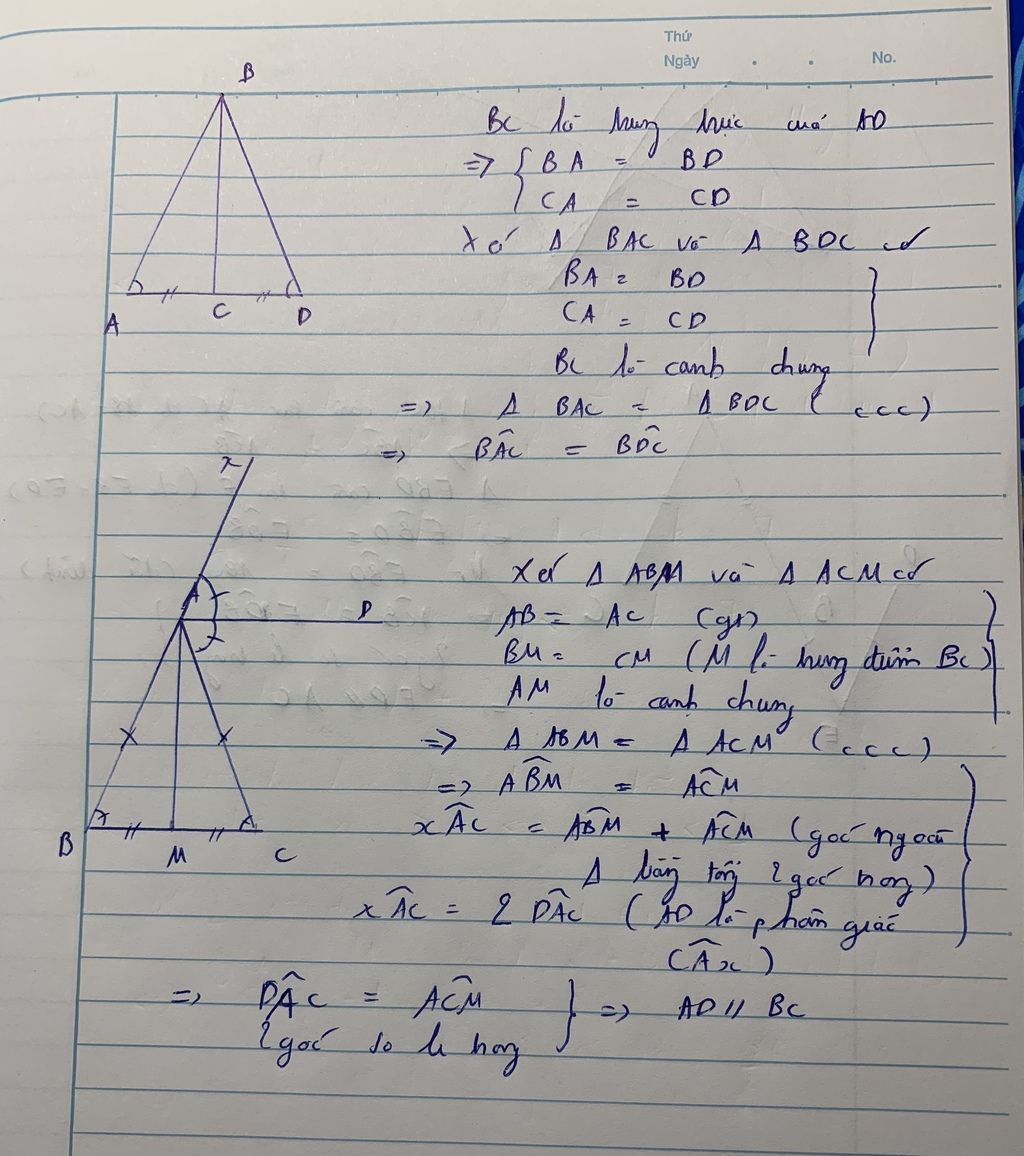 Thứ
Ngày . . No.
B
A C D
BC là trung trực của AD
=> { BA = BD
CA = CD
Xét Δ BAC và Δ BDC có
BA = BD
CA = CD
BC là cạnh chung }
=> Δ BAC = Δ BDC (ccc)
=> BÂC = BD̂C
x
A D
B M C
Xét Δ ABM và Δ ACM có
AB = AC (gt)
BM = CM (M là trung điểm BC)
AM là cạnh chung }
=> Δ ABM = Δ ACM (ccc)
=> AB̂M = AĈM
xÂC = AB̂M + AĈM (góc ngoài
Δ bằng tổng 2 góc trong)
xÂC = 2 DÂC (AD là phân giác
CÂx) }
=> DÂC = AĈM } => AD // BC
2 góc so le trong